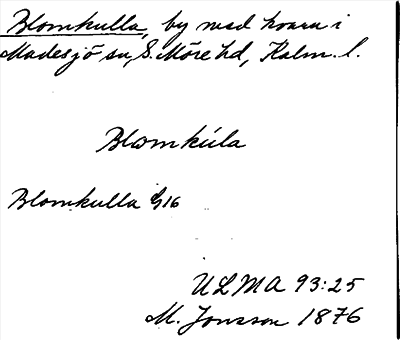 Blomkulla, by med kvarn i
Madesjö sn, S. Möre hd, Kalm. l.
Blomkúla
Blomkulla G16
ULMA 93:25
M. Jonsson 1876